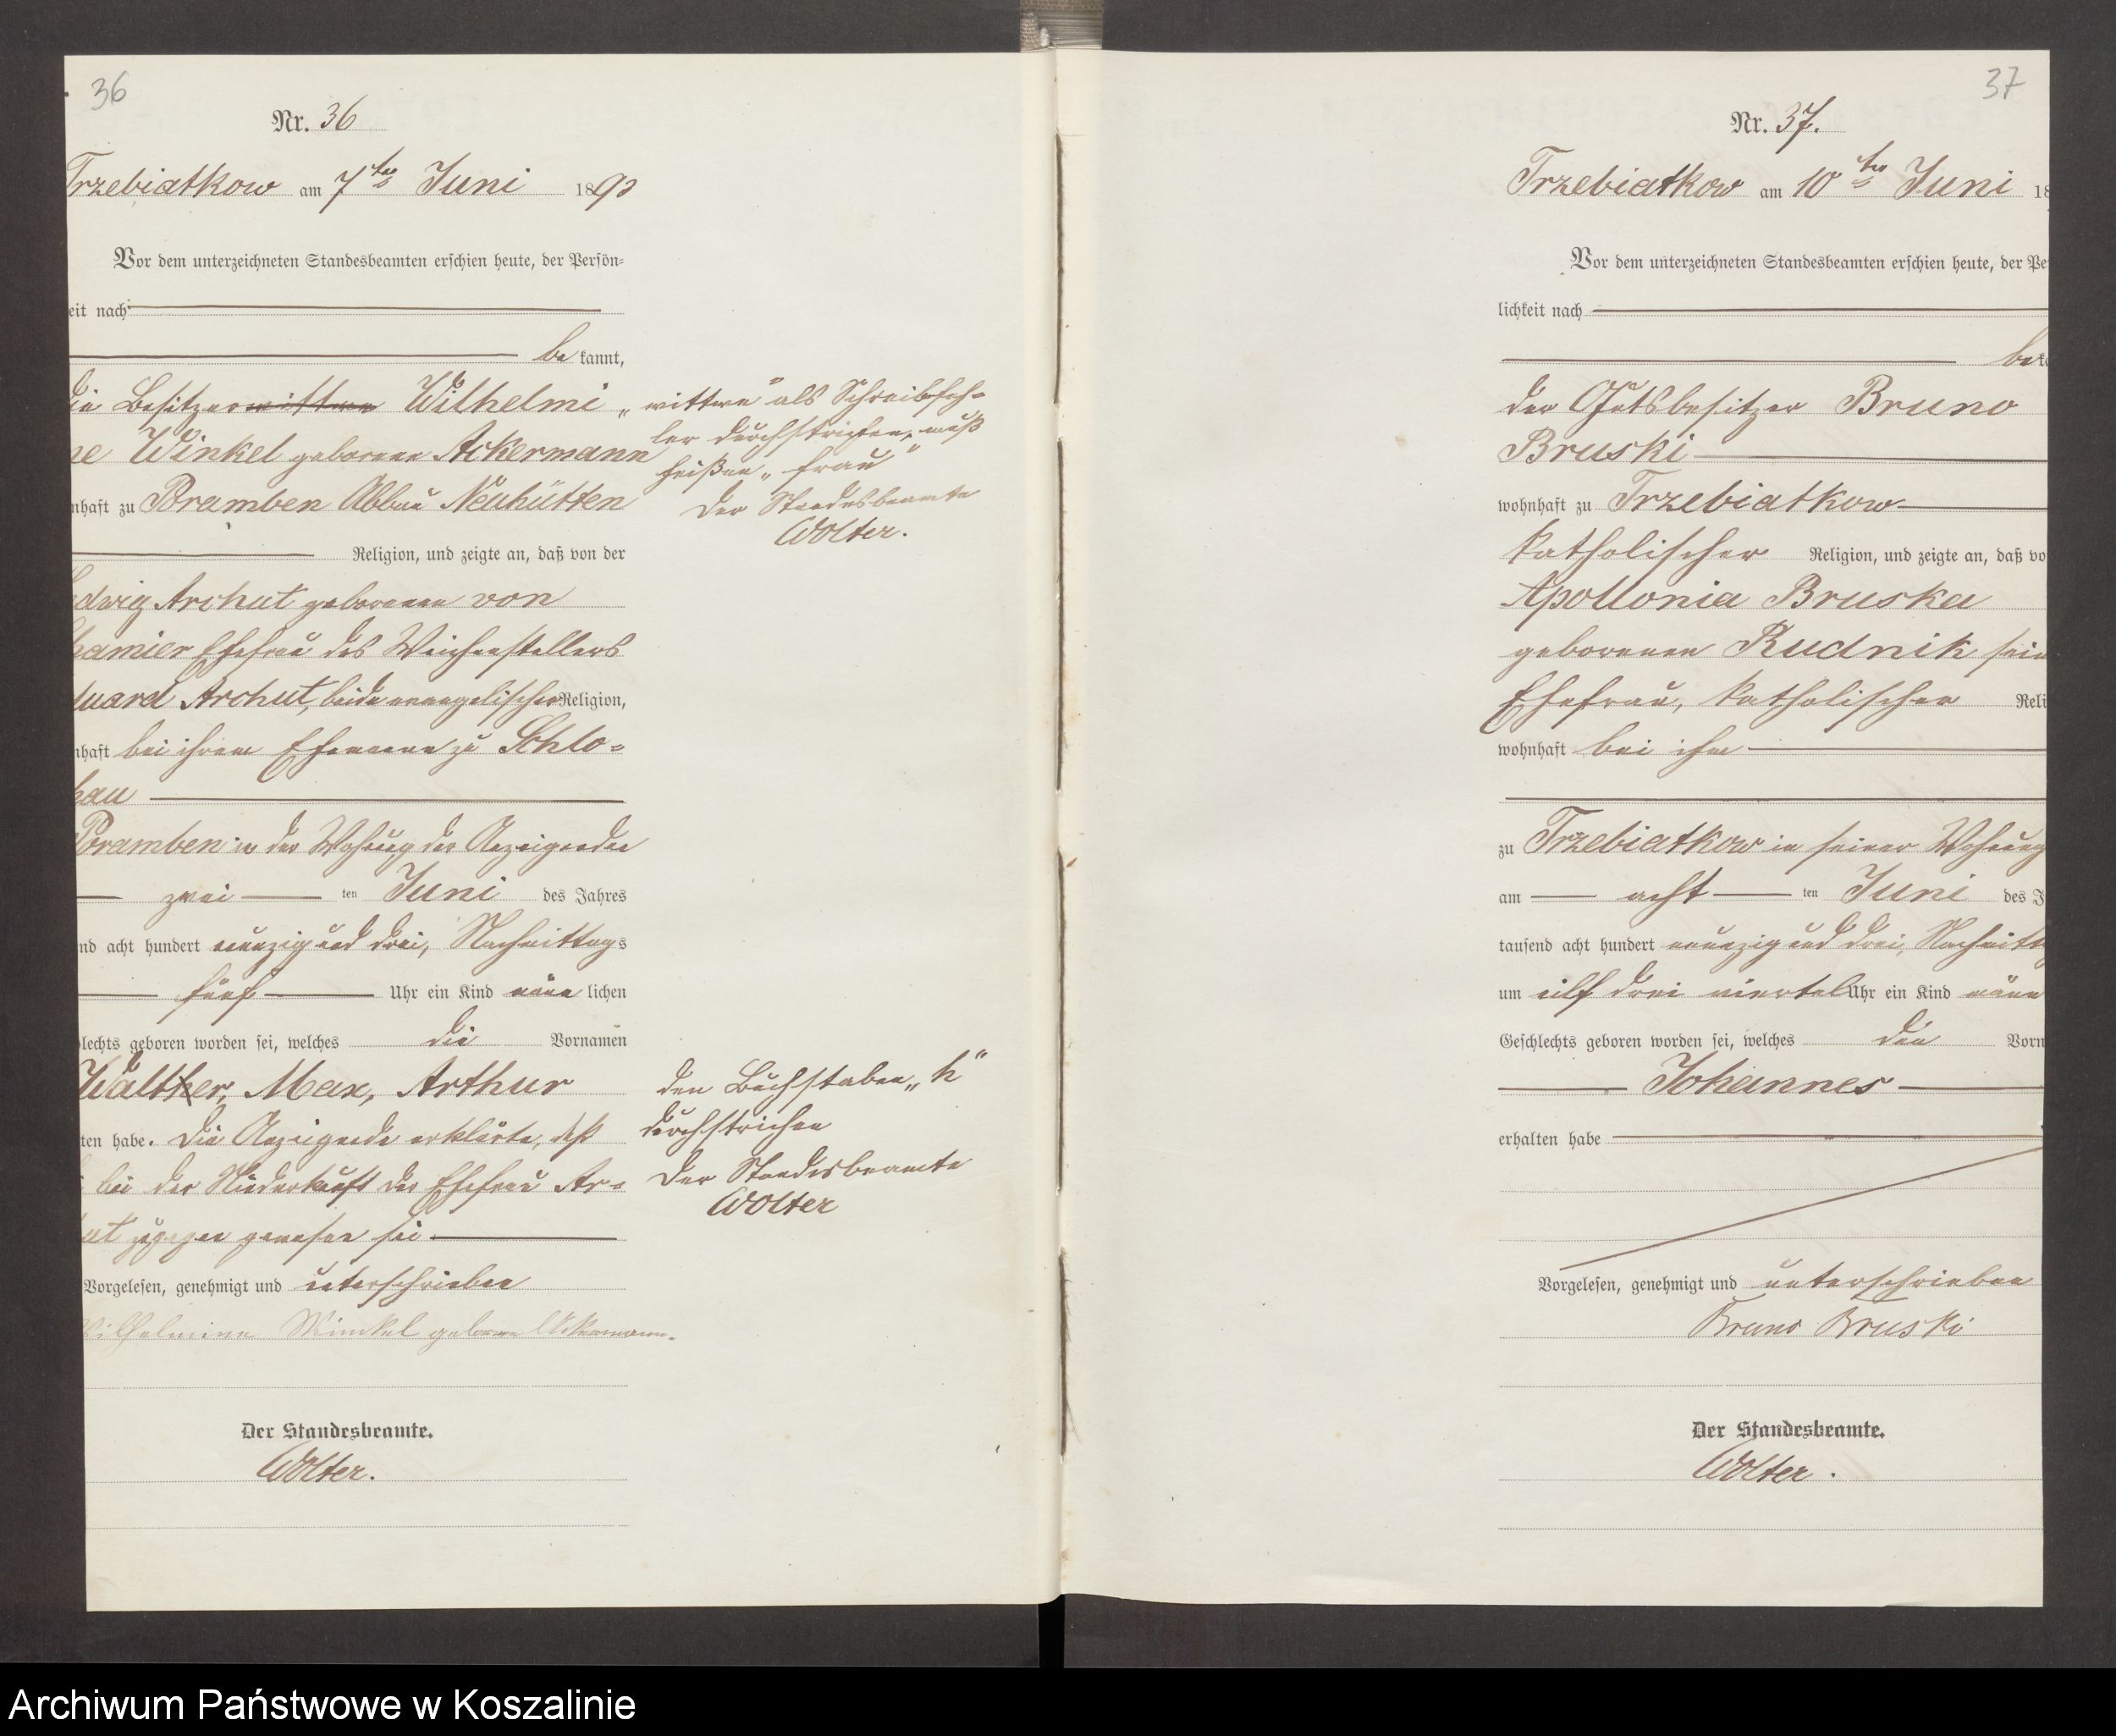 36
Nr. 36
Trzebiatkow am 7ten Juni 1893
Vor dem unterzeichneten Standesbeamten erschien heute, der Persön-
eit nach
be kannt,
die Besitzerwittwe Wilhelmi
ne Winkel geborene Ackermann
nhaft zu Pramben Abbau Neuhütten
Religion, und zeigte an, daß von der
edwig Archut geborenen von
Ehefrau des Weichenstellers
duard Archut, beide evangelischer Religion,
nhaft bei ihrem Ehemann zu Schlo-
hau
Pramben in der Wohnung der Anzeigenden
zwei ten Juni des Jahres
nd acht hundert neunzig und drei, Nachmittags
fünf Uhr ein Kind männ lichen
lechts geboren worden sei, welches die Vornamen
Walther, Max, Arthur
ten habe. Die Anzeigende erklärte, daß
bei der Niederkunft der Ehefrau Ar-
ut zugegen gewesen sei
Vorgelesen, genehmigt und unterschrieben
Wilhelmine Winkel geborene Ackermann.
Der Standesbeamte.
Wolter.
„wittwe“ als Schreibfeh-
ler durchstrichen, muß
heißen „frau“
Der Standesbeamte
Wolter.
den Buchstaben „h“
durchstrichen
Der Standesbeamte
Wolter
37
Nr. 37.
Trzebiatkow am 10ten Juni 18
Vor dem unterzeichneten Standesbeamten erschien heute, der Pe
lichkeit nach
be k
der Gutsbesitzer Bruno
Bruski
wohnhaft zu Trzebiatkow
katholischer Religion, und zeigte an, daß vo
Apollonia Bruska
geborenen Rudnik sein
Ehefrau, katholischer Reli
wohnhaft bei ihm
zu Trzebiatkow in seiner Wohnung
am acht ten Juni des J
tausend acht hundert neunzig und drei, Nachmitt
um eilf drei viertel Uhr ein Kind männ
Geschlechts geboren worden sei, welches den Vorn
Johannes
erhalten habe
Vorgelesen, genehmigt und unterschrieben
Bruno Bruski
Der Standesbeamte.
Wolter.
Archiwum Państwowe w Koszalinie